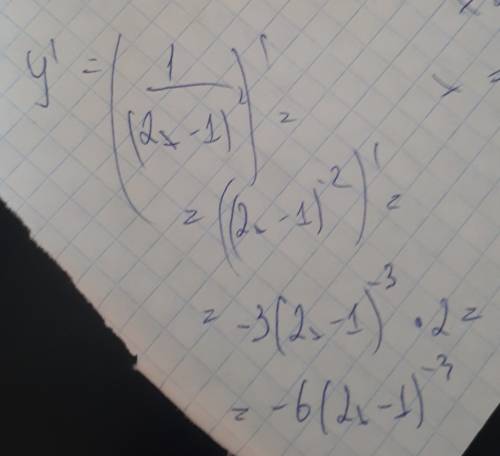 x
y' = (1/(2x-1)²)' =
x =
= ((2x-1)⁻²)' =
= -3(2x-1)⁻³ · 2 =
= -6(2x-1)⁻³